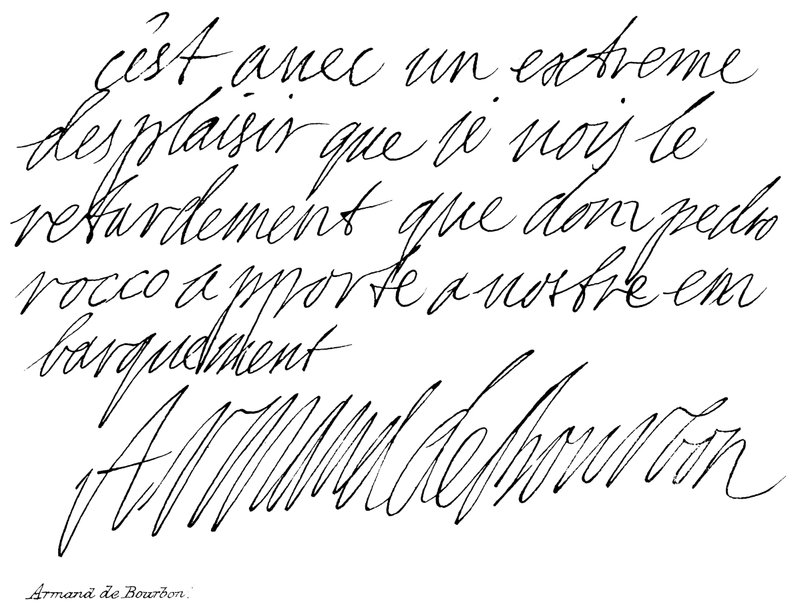 c'est avec un extreme
desplaisir que je voij le
retardement que dom pedro
rocco apporte a nostre em
barquement
Armand de Bourbon
Armand de Bourbon.